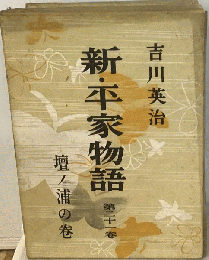 吉川英治
新・平家物語
第二十卷
壇ノ浦の巻